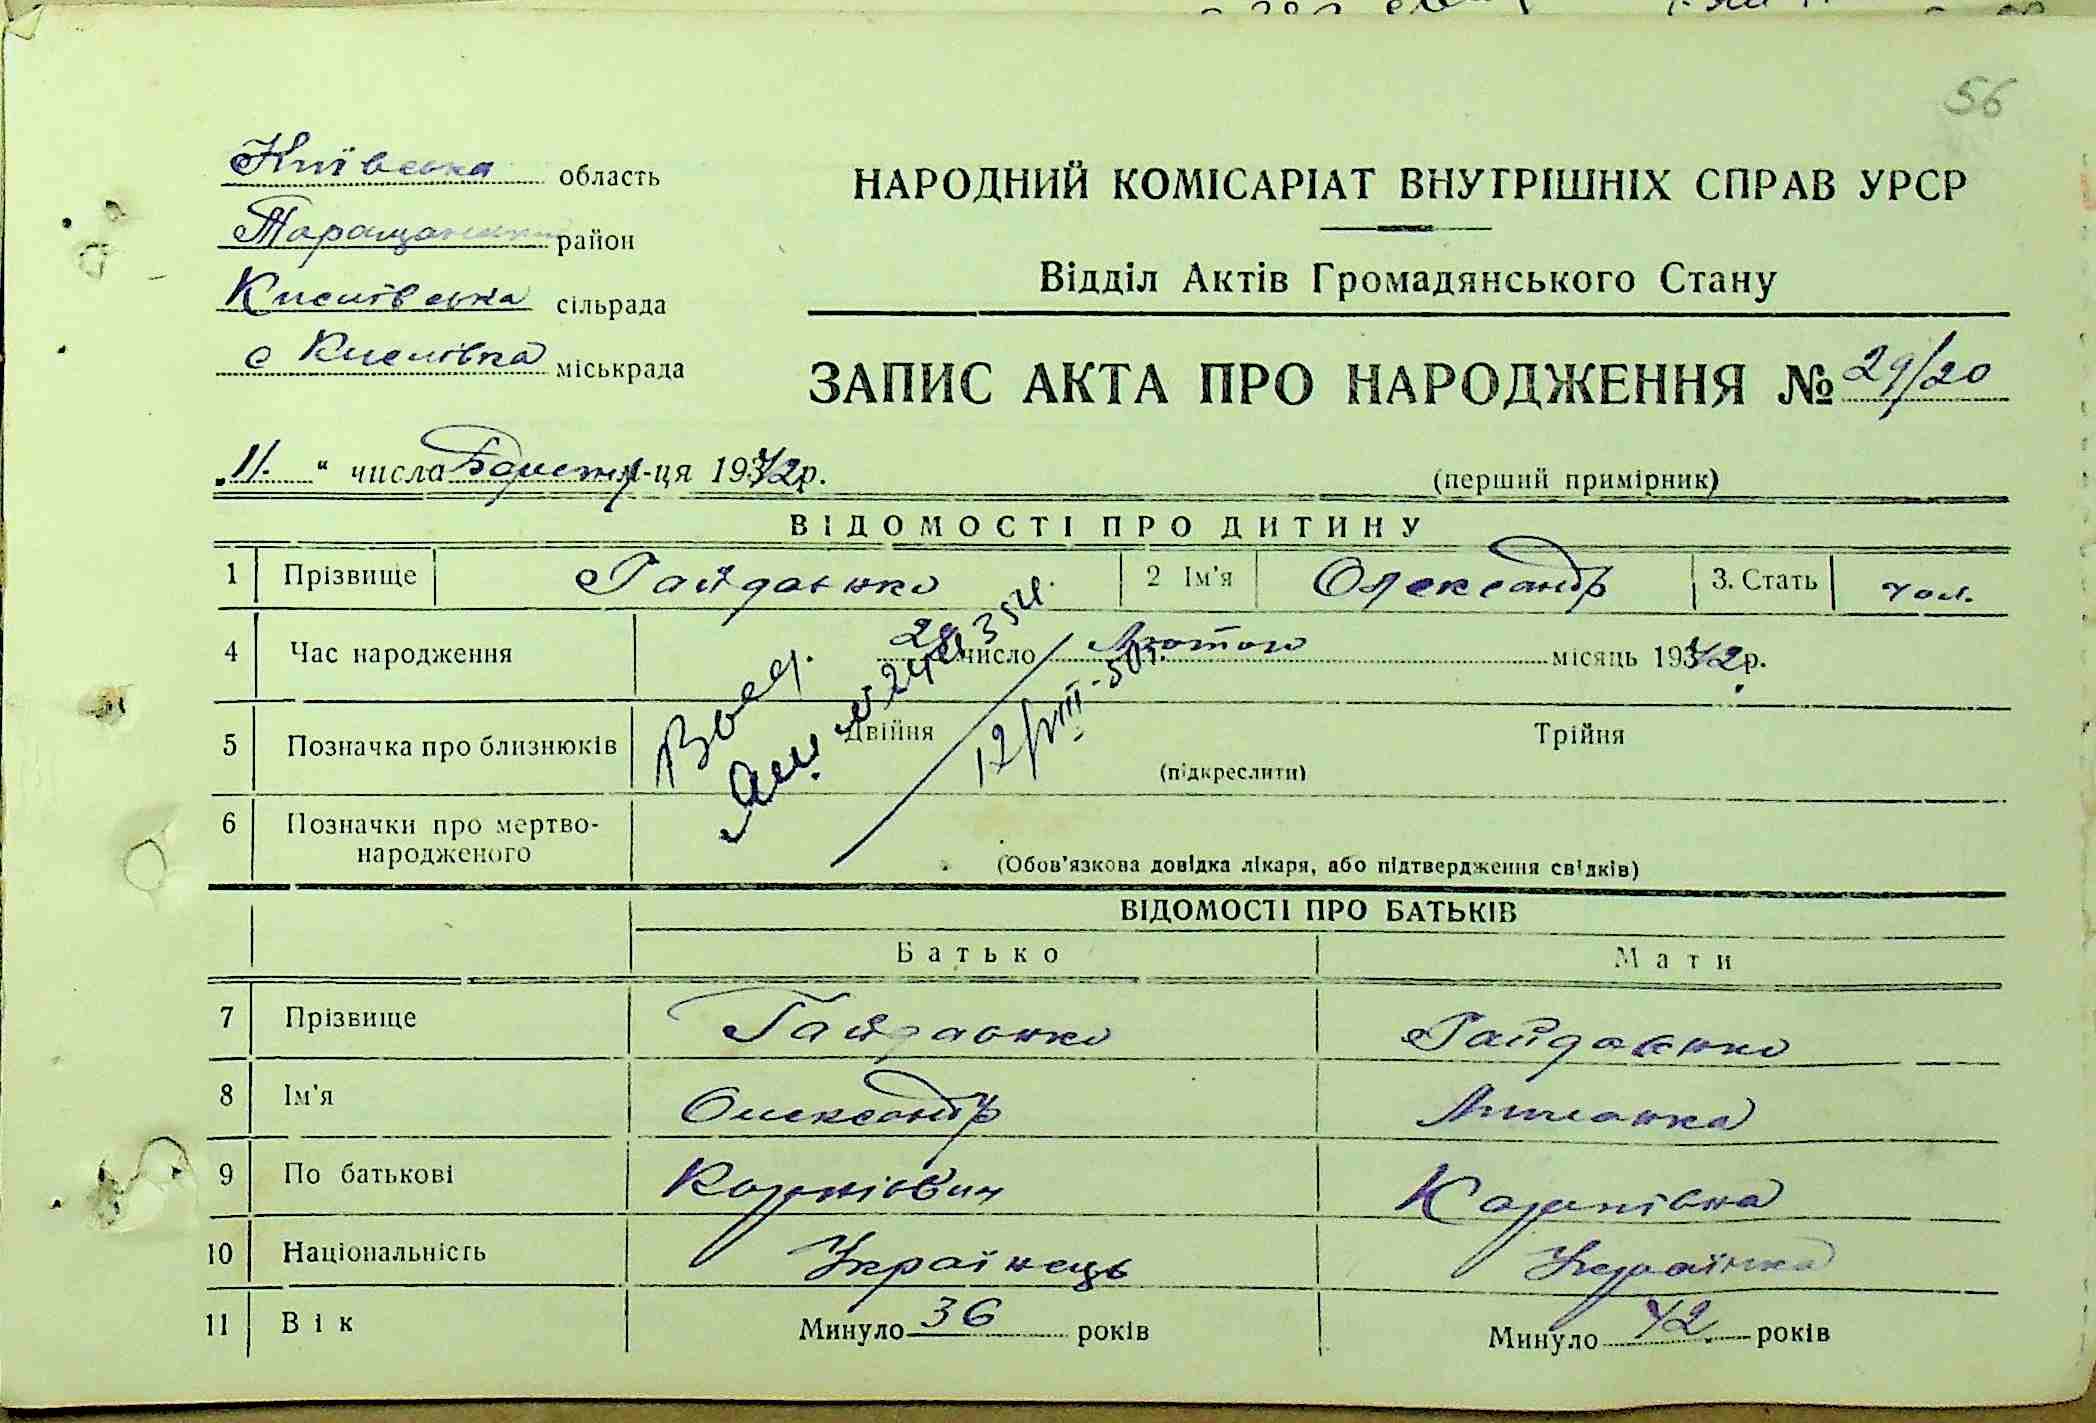 56
Київська область
Таращанський район
Кислівська сільрада
с Кислівка міськрада
НАРОДНИЙ КОМІСАРІАТ ВНУТРІШНІХ СПРАВ УРСР
Відділ Актів Громадянського Стану
ЗАПИС АКТА ПРО НАРОДЖЕННЯ № 29/20
„11." числа м-ця 1942р.
(перший примірник)
ВІДОМОСТІ ПРО ДИТИНУ
1 Прізвище Гайденко 2 Ім'я Олександр 3. Стать чол.
4 Час народження 28 число Лютого місяць 1942р.
5 Позначка про близнюків Двійня Трійня
(підкреслити)
12/VIII-50г.
6 Позначки про мертво-
народженого
(Обов'язкова довідка лікаря, або підтвердження свідків)
ВІДОМОСТІ ПРО БАТЬКІВ
Батько Мати
7 Прізвище Гайденко Гайденко
8 Ім'я Олександр
9 По батькові Карпівна
10 Національність Українець Українка
11 Вік Минуло 36 років Минуло 42 років